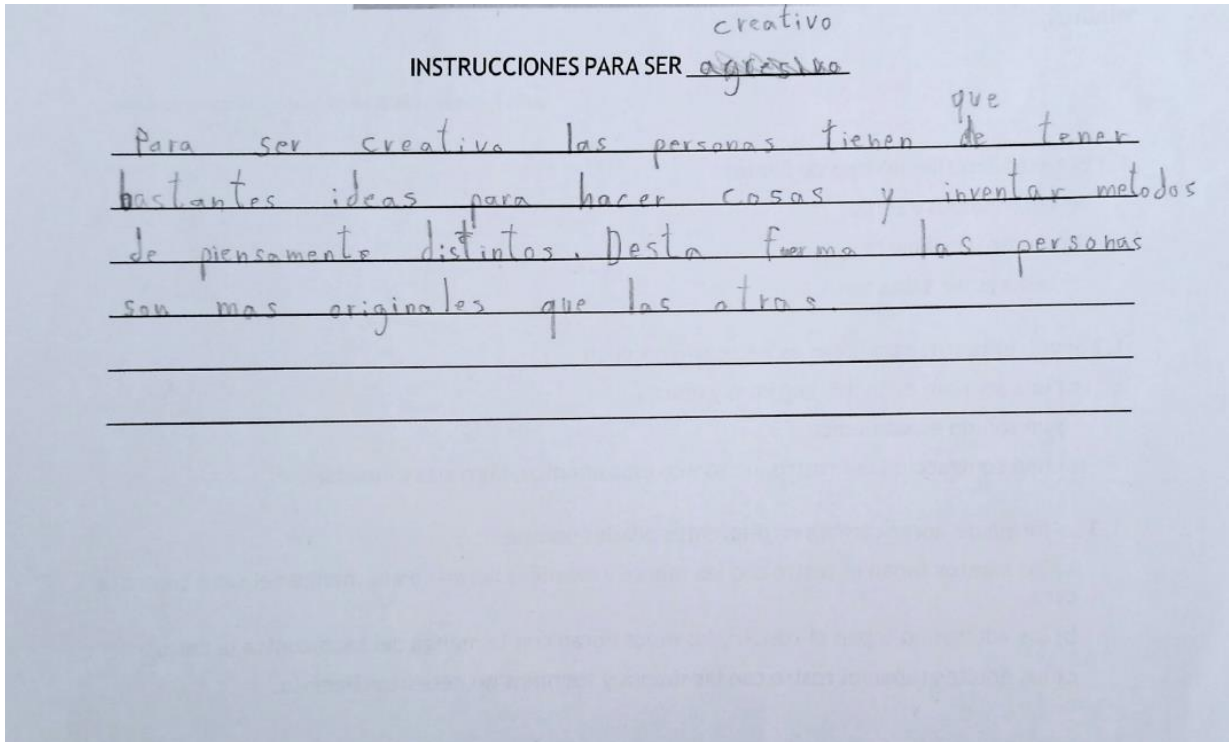 creativo
INSTRUCCIONES PARA SER agresivo
que
Para ser creativo las personas tienen de tener
bastantes ideas para hacer cosas y inventar metodos
de piensamento distintos. Desta forma las personas
son mas originales que las otras.